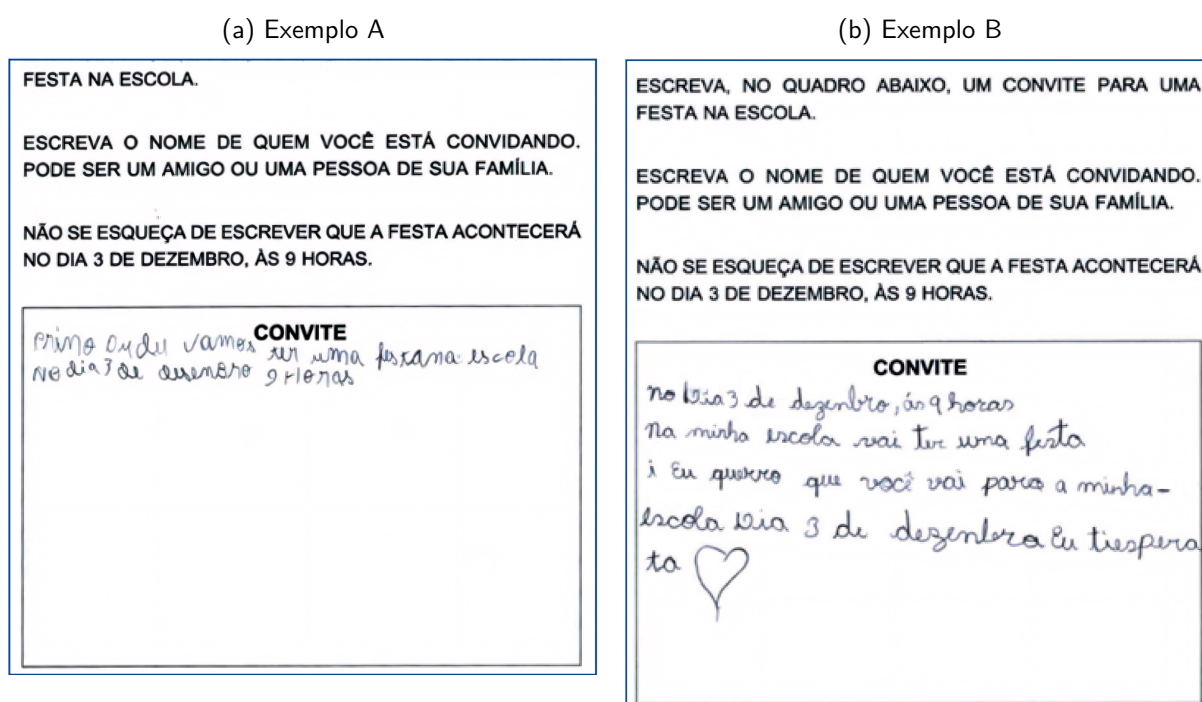 (a) Exemplo A
FESTA NA ESCOLA.
ESCREVA O NOME DE QUEM VOCÊ ESTÁ CONVIDANDO.
PODE SER UM AMIGO OU UMA PESSOA DE SUA FAMÍLIA.
NÃO SE ESQUEÇA DE ESCREVER QUE A FESTA ACONTECERÁ
NO DIA 3 DE DEZEMBRO, ÀS 9 HORAS.
CONVITE
vamos ter uma festana escola
No dia 3 de 9 Horas
(b) Exemplo B
ESCREVA, NO QUADRO ABAIXO, UM CONVITE PARA UMA
FESTA NA ESCOLA.
ESCREVA O NOME DE QUEM VOCÊ ESTÁ CONVIDANDO.
PODE SER UM AMIGO OU UMA PESSOA DE SUA FAMÍLIA.
NÃO SE ESQUEÇA DE ESCREVER QUE A FESTA ACONTECERÁ
NO DIA 3 DE DEZEMBRO, ÀS 9 HORAS.
CONVITE
no Dia 3 de dezenbro, ás 9 horas
na minha escola vai ter uma festa
i Eu querro que você vai para a minha-
escola Dia 3 de dezenbro Eu tiespera
ta